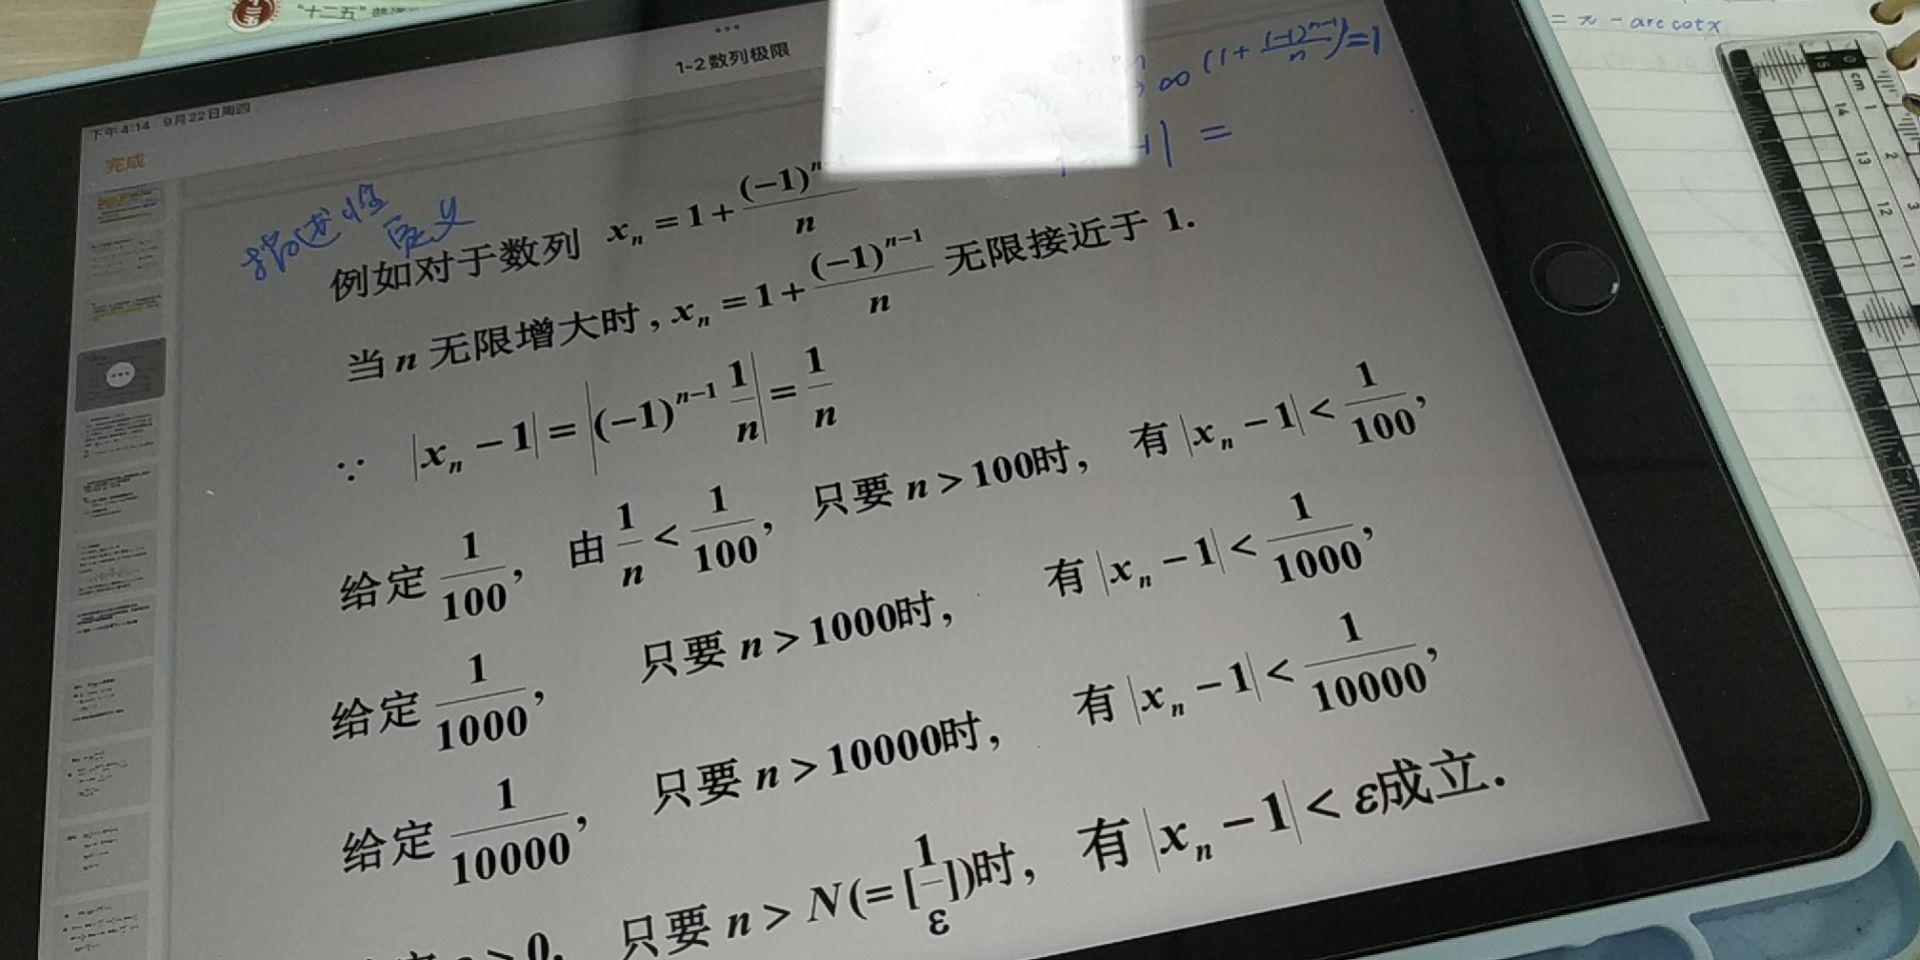 "十二五"
= π - arccotx
下午4:14 9月22日周四
1-2数列极限
完成
∞ (1+(-1)^{n-1}/n)=1
-1| =
描述性
定义
例如对于数列 x_n = 1+(-1)^n/n
当 n 无限增大时, x_n = 1+(-1)^{n-1}/n 无限接近于 1.
∵ |x_n −1| = |(−1)^{n−1} 1/n| = 1/n
给定 1/100, 由 1/n < 1/100, 只要 n > 100时, 有 |x_n −1| < 1/100,
给定 1/1000, 只要 n > 1000时, 有 |x_n −1| < 1/1000,
给定 1/10000, 只要 n > 10000时, 有 |x_n −1| < 1/10000,
> 0, 只要 n > N(= [1/ε])时, 有 |x_n −1| < ε成立.